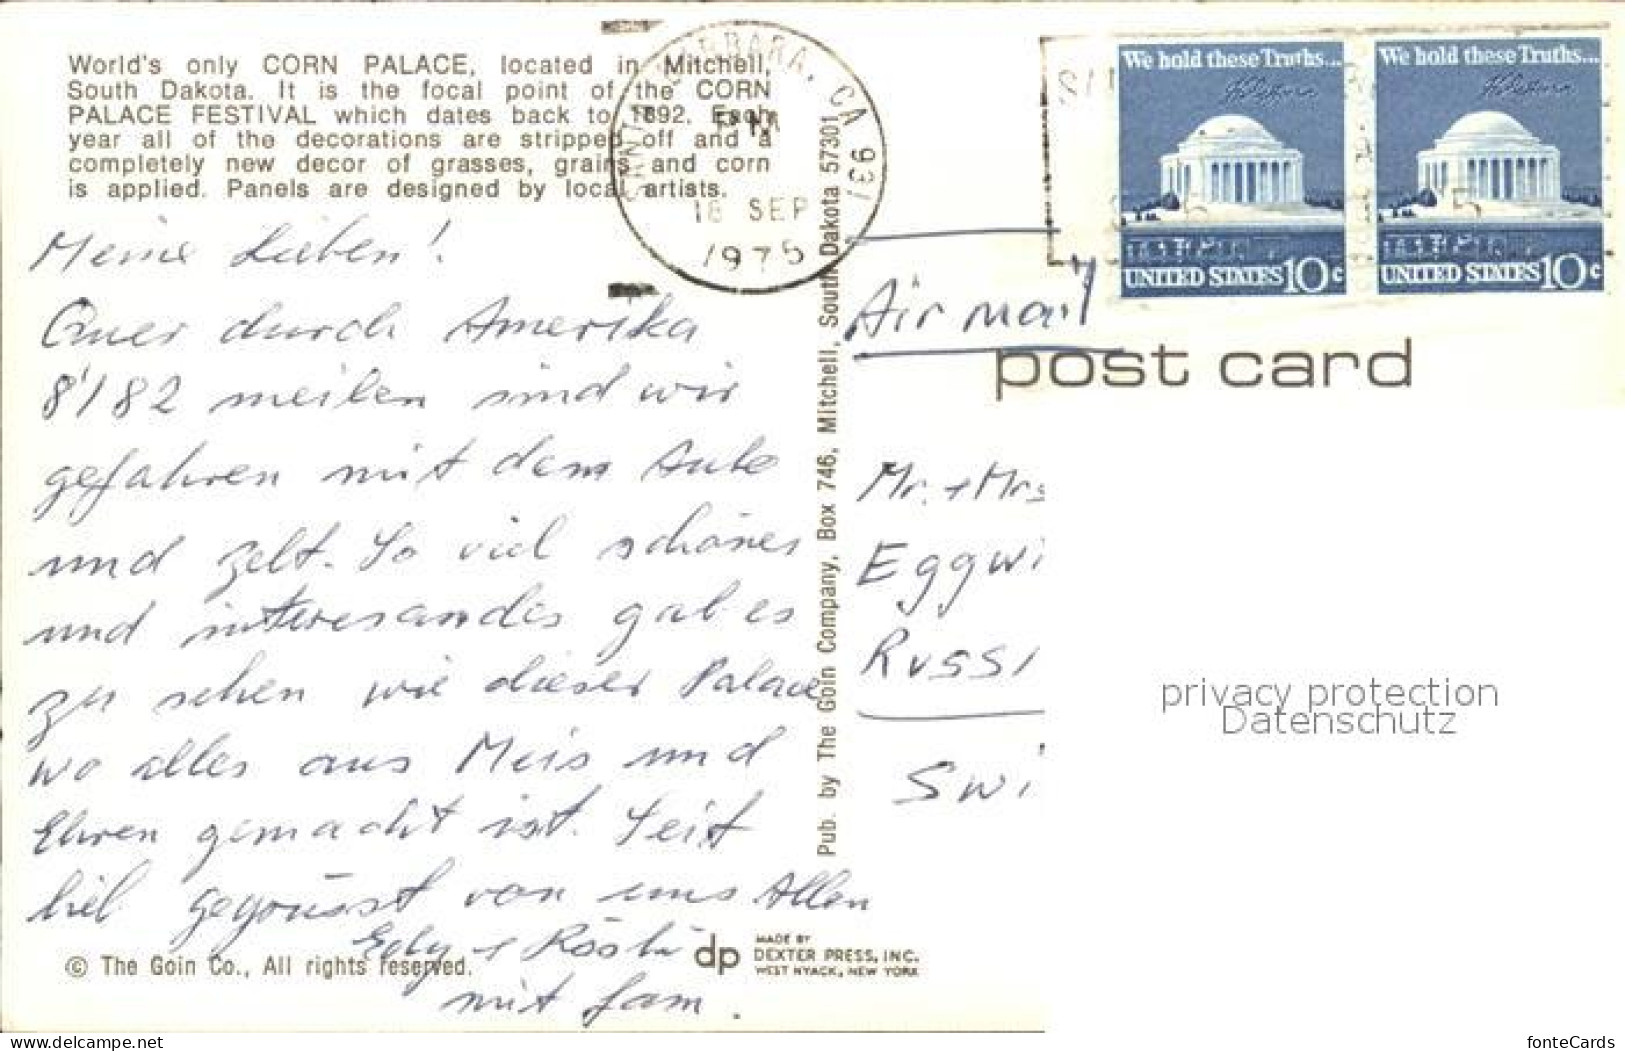 World's only CORN PALACE, located in Mitchell,
South Dakota. It is the focal point of the CORN
PALACE FESTIVAL which dates back to 1892. Each
year all of the decorations are stripped off and a
completely new decor of grasses, grains and corn
is applied. Panels are designed by local artists.
BARBARA, CA 931
PM
18 SEP
1975
Meine Lieben!
Quer durch Amerika
8'182 meilen sind wir
gefahren mit dem Auto
und zelt. So viel schönes
und interesandes gab es
zu sehen wie dieser Palace
wo alles aus Meis und
Ehren gemacht ist. Seit
hiel gegrüsst von uns Allen
Edy + Rösli
mit fam.
© The Goin Co., All rights reserved.
dp
MADE BY
DEXTER PRESS, INC.
WEST NYACK, NEW YORK
Pub. by The Goin Company, Box 746, Mitchell, South Dakota 57301
We hold these Truths...
UNITED STATES 10c
We hold these Truths...
UNITED STATES 10c
Air mail
post card
Mr. + Mrs
Eggwi
Russi
Swi
privacy protection
Datenschutz
www.delcampe.net
fonteCards